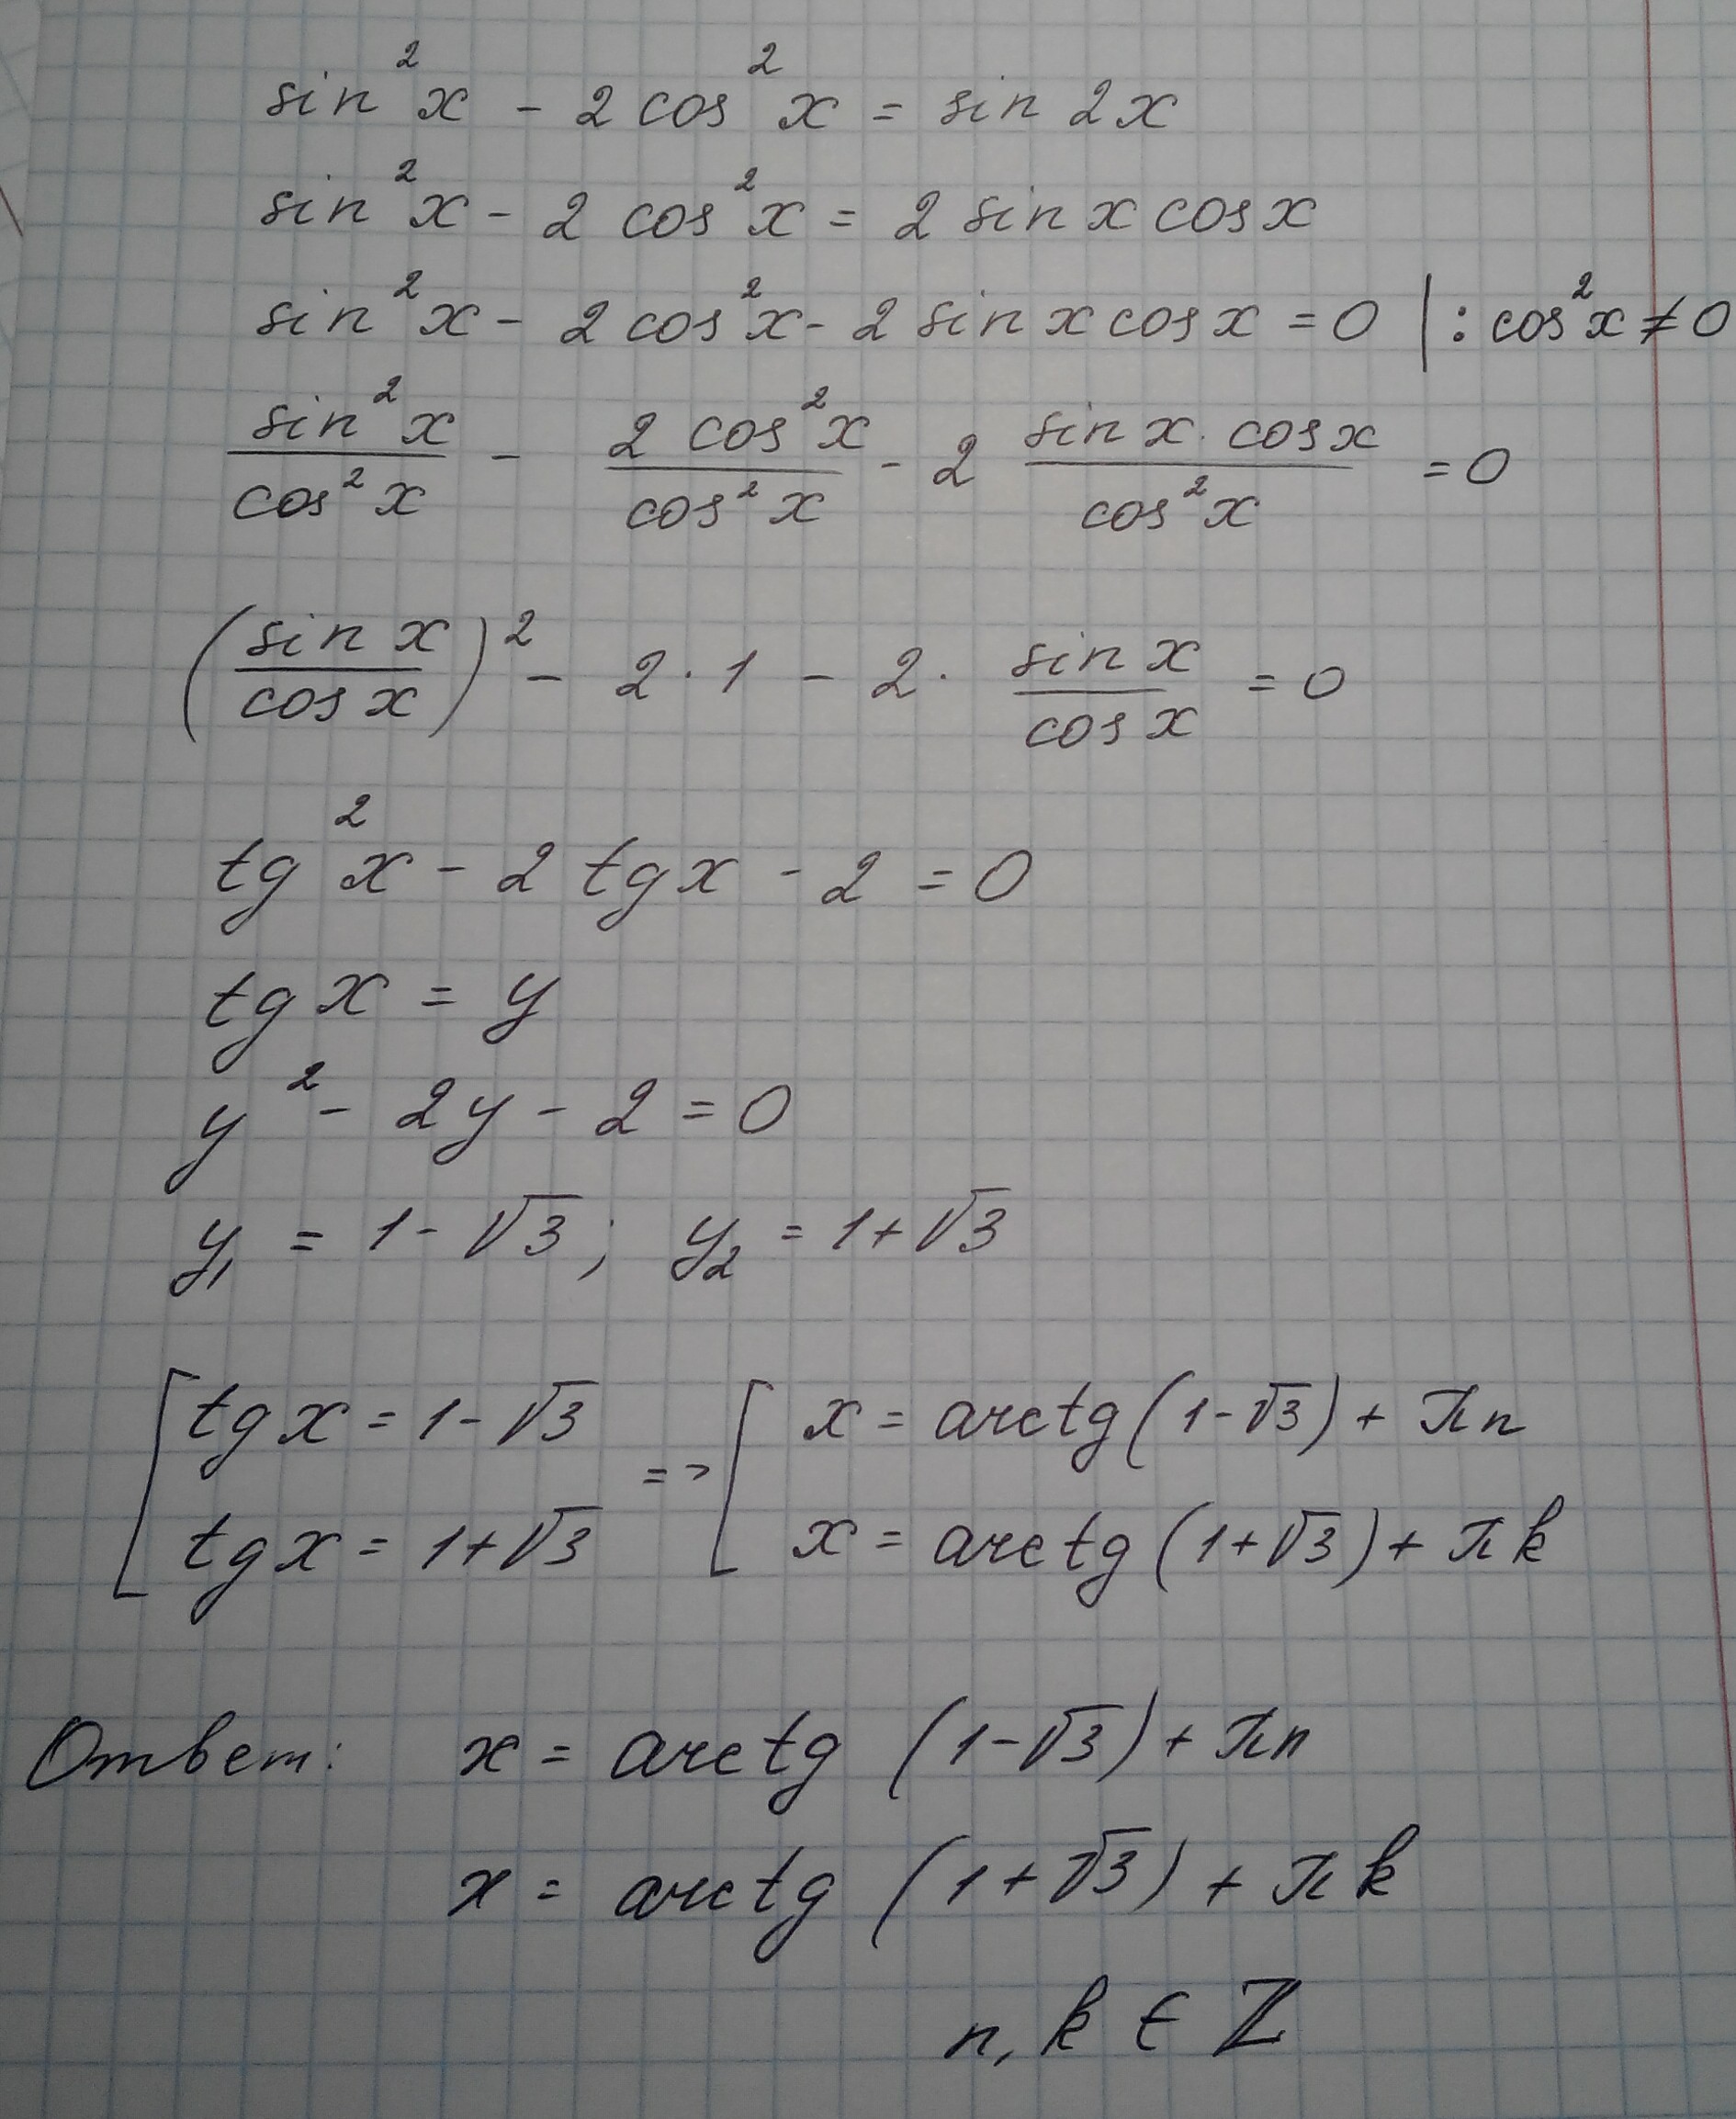 sin²x - 2 cos²x = sin 2x
sin²x - 2 cos²x = 2 sin x cos x
sin²x - 2 cos²x - 2 sin x cos x = 0 | : cos²x ≠ 0
sin²x / cos²x - 2 cos²x / cos²x - 2 sin x · cos x / cos²x = 0
(sin x / cos x)² - 2 · 1 - 2 · sin x / cos x = 0
tg²x - 2 tg x - 2 = 0
tg x = y
y² - 2y - 2 = 0
y₁ = 1 - √3 ; y₂ = 1 + √3
[ tg x = 1 - √3 => [ x = arctg (1 - √3) + πn
tg x = 1 + √3 x = arctg (1 + √3) + πk
Ответ: x = arctg (1 - √3) + πn
x = arctg (1 + √3) + πk
n, k ∈ ℤ